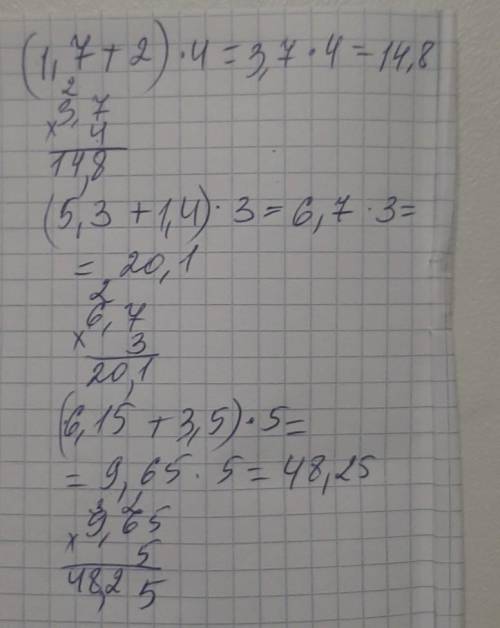 (1,7 + 2) · 4 = 3,7 · 4 = 14,8
2
3,7
× 4
14,8
(5,3 + 1,4) · 3 = 6,7 · 3 =
= 20,1
2
6,7
× 3
20,1
(6,15 + 3,5) · 5 =
= 9,65 · 5 = 48,25
3 2
9,65
× 5
48,25